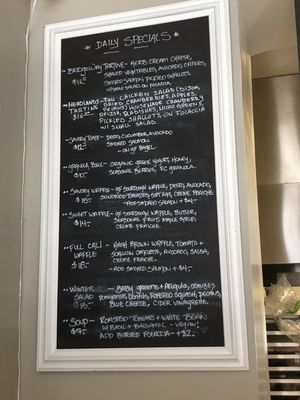 DAILY SPECIALS
BRIDGEWAY TARTINE - HERB CREAM CHEESE,
$16- SHAVED VEGETABLES, AVOCADO, CAPERS,
SMOKED SALMON, PICKLED SHALLOTS,
W/ SMALL SALAD ON FOCACCIA
HEADLANDS - THAI CHICKEN SALAD (DIJON,
TARTINE DRIED CRANBERRIES, APPLES,
$16 HOUSEMADE CRANBERRY
RELISH, RADISHES, MICRO GREENS,
PICKLED SHALLOTS, ON FOCACCIA
W/ SMALL SALAD
SAVORY TOAST - PESTO, CUCUMBER, AVOCADO
$12- SMOKED SALMON
- ON GF BAGEL
GRANOLA BOWL - ORGANIC GREEK YOGURT, HONEY,
$10- SEASONAL BERRIES, FC GRANOLA
SAVORY WAFFLE - GF SOURDOUGH WAFFLE, PESTO, AVOCADO,
$15- SUNDRIED TOMATOES, CRÈME FRAICHE
- ADD SMOKED SALMON + $4-
SWEET WAFFLE - GF SOURDOUGH WAFFLE, BUTTER,
$14- SEASONAL FRUIT, MAPLE SYRUP,
CRÈME FRAICHE
FULL CALL - HASH BROWN WAFFLE, TOMATO +
WAFFLE SCALLION OMELETTE, AVOCADO, SALSA,
$15- CRÈME FRAICHE
- ADD SMOKED SALMON + $4-
WINTER - BABY GREENS + ARUGULA, ORANGES
SALAD POMEGRANATE, ROASTED SQUASH, PECANS,
$15- BLUE CHEESE, CIDER VINAIGRETTE
SOUP - ROASTED TOMATO + WHITE BEAN
$9- W/ BASIL + BALSAMIC - VEGAN!
ADD BUTTERED FOCACCIA - + $2-